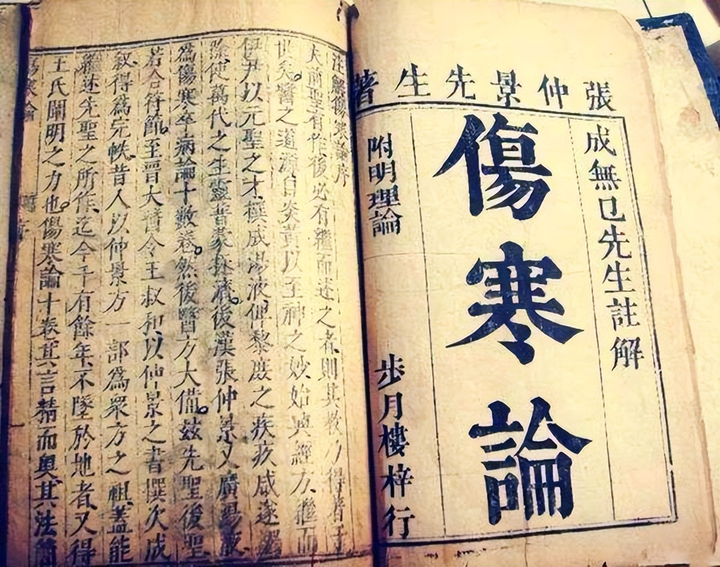 張仲景先生著
成無已先生註解
傷寒論
附明理論
步月樓梓行
註解傷寒論序
夫前聖有作後必有繼而述之者則其教乃得著于
世矣醫之道源自炎黃以至神之妙始興經方繼而
伊尹以元聖之才撰成湯液俾黎庶之疾疚咸遂蠲
除使萬代之生靈普蒙拯濟後漢張仲景又廣湯液
為傷寒卒病論十數卷然後醫方大備茲先聖後聖
若合符節至晉大醫令王叔和以仲景之書撰次成
敘得為完帙昔人以仲景方一部為眾方之祖蓋能
繼述先聖之所作迄今千有餘年不墜於地者又得
王氏闡明之力也傷寒論十卷其言精而奧其法簡
傷寒論